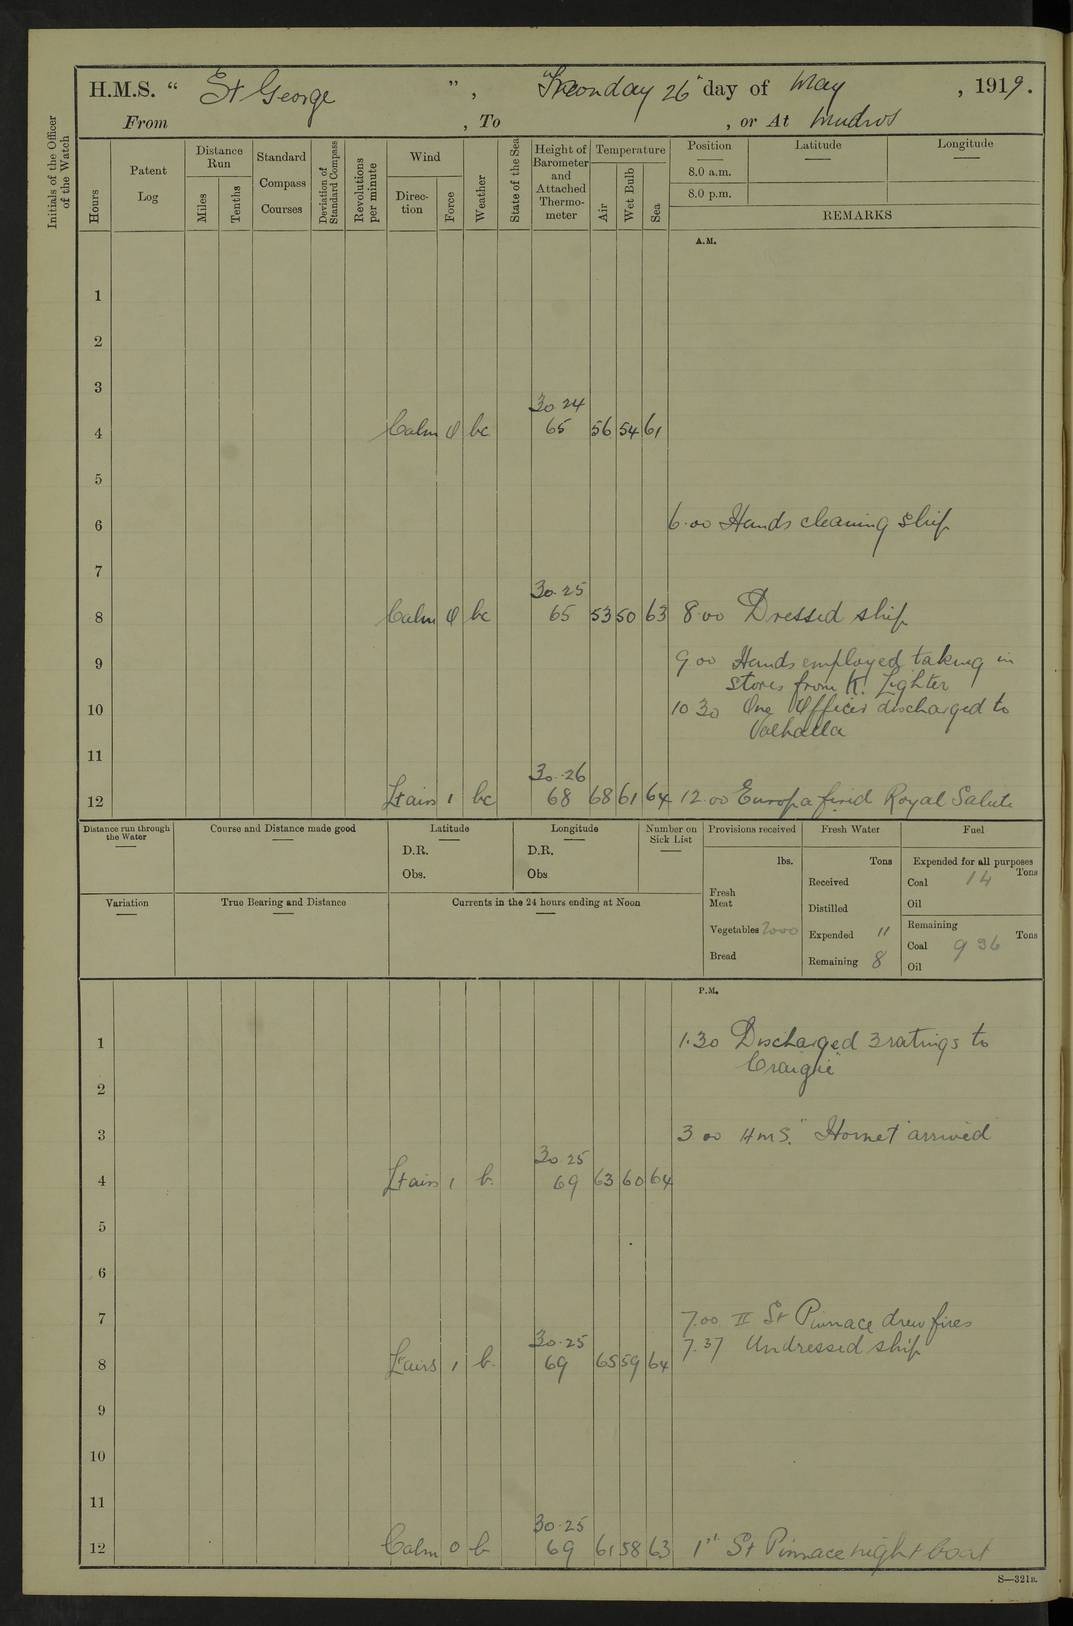 H.M.S. “ St George ” , Monday 26 day of May , 1919.
From , To , or At Mudros
Initials of the Officer of the Watch
Hours
Patent Log
Distance Run
Miles
Tenths
Standard Compass Courses
Deviation of Standard Compass
Revolutions per minute
Wind
Direction
Force
Weather
State of the Sea
Height of Barometer and Attached Thermometer
Temperature
Air
Wet Bulb
Sea
Position
8.0 a.m.
8.0 p.m.
Latitude
Longitude
REMARKS
A.M.
1
2
3
30 24
4 Calm 0 bc 65 56 54 61
5
6 6.00 Hands cleaning ship
7
30.25
8 Calm 0 bc 65 53 50 63 8.00 Dressed ship
9 9 00 Hands employed taking in
stores from K. Lighter
10 10 30 One Officer discharged to
Valhalla
11
30.26
12 Lt airs 1 bc 68 68 61 64 12.00 Europa fired Royal Salute
Distance run through the Water
Course and Distance made good
Latitude
D.R.
Obs.
Longitude
D.R.
Obs
Number on Sick List
Provisions received
lbs.
Fresh Meat
Vegetables 2000
Bread
Fresh Water
Tons
Received
Distilled
Expended 11
Remaining 8
Fuel
Expended for all purposes
Tons
Coal 14
Oil
Remaining
Tons
Coal 936
Oil
Variation
True Bearing and Distance
Currents in the 24 hours ending at Noon
P.M.
1 1.30 Discharged 3 ratings to
Craigie"
2
3 3 00 HMS. "Hornet" arrived
30 25
4 Lt airs 1 b. 69 63 60 64
5
6
7 7.00 II St Pinnace drew fires
30.25
7.37 Undressed ship
8 Lt airs 1 b. 69 65 59 64
9
10
11
30.25
12 Calm 0 b 69 61 58 63 1st St Pinnace night boat
S—321B.